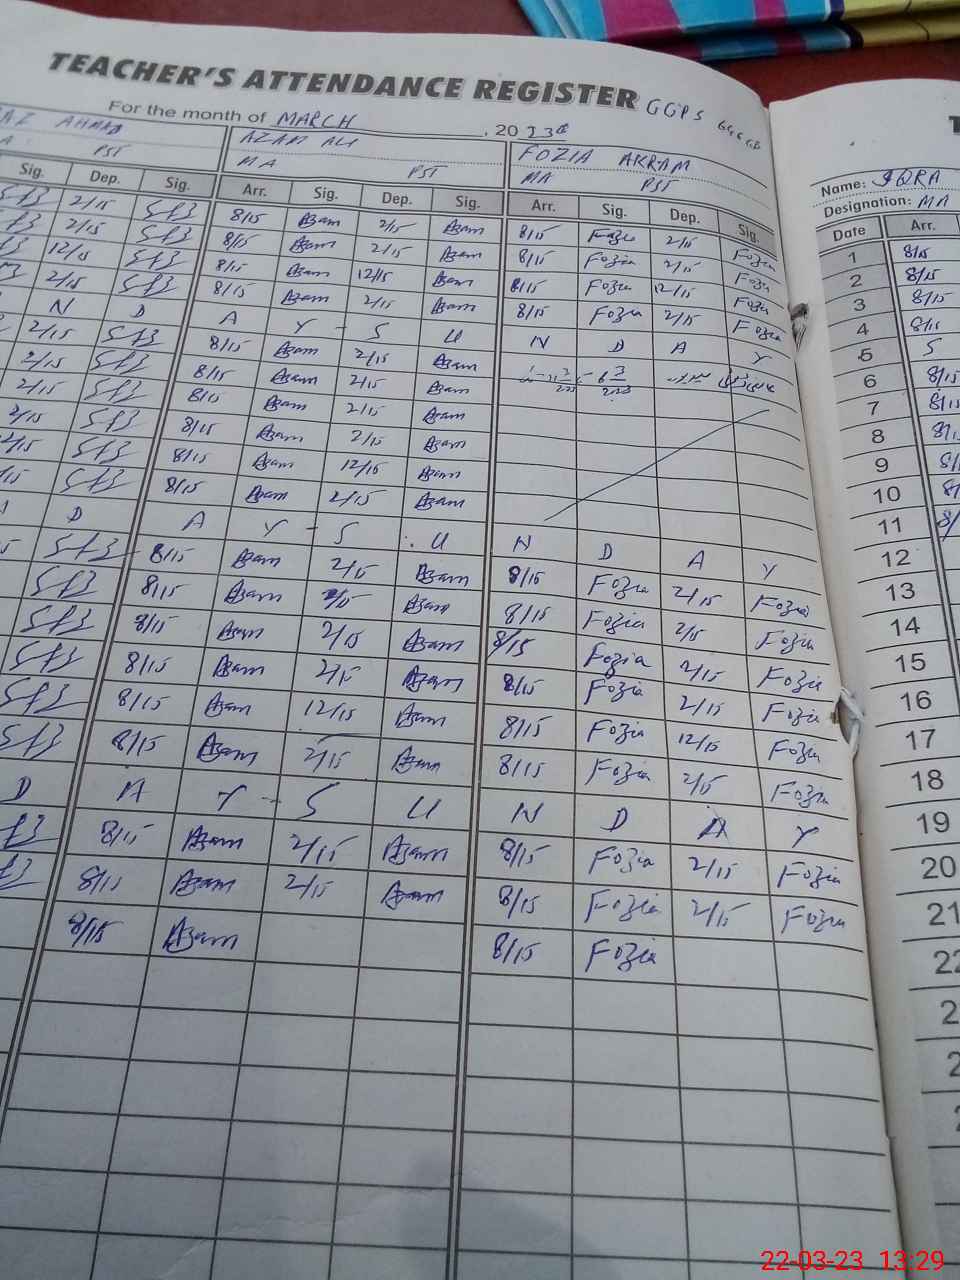 TEACHER'S ATTENDANCE REGISTER GGPS
For the month of MARCH , 20
AHMAD AZAM ALI FOZIA AKRAM Name: IQRA
PST MA PST MA PST Designation: MA
Sig. Dep. Sig. Arr. Sig. Dep. Sig. Arr. Sig. Dep. Sig. Date Arr.
2/15 8/15 Azam 2/15 Azam 8/15 Fozia 2/15 Fozia 1 8/15
2/15 8/15 Azam 2/15 Azam 8/15 Fozia 2/15 Fozia 2 8/15
12/15 8/15 Azam 12/15 Azam 8/15 Fozia 12/15 Fozia 3 8/15
2/15 8/15 Azam 2/15 Azam 8/15 Fozia 2/15 Fozia 4 8/15
N D A Y - S U N D A Y 5 S
2/15 8/15 Azam 2/15 Azam 6 8/15
2/15 8/15 Azam 2/15 Azam 7 8/15
2/15 8/15 Azam 2/15 Azam 8 8/15
2/15 8/15 Azam 2/15 Azam 9
12/15 8/15 Azam 12/15 Azam 10
8/15 Azam 2/15 Azam 11
D A Y - S U N D A Y 12
8/15 Azam 2/15 Azam 8/15 Fozia 2/15 Fozia 13
8/15 Azam 2/15 Azam 8/15 Fozia 2/15 Fozia 14
8/15 Azam 2/15 Azam 8/15 Fozia 2/15 Fozia 15
8/15 Azam 2/15 Azam 8/15 Fozia 2/15 Fozia 16
8/15 Azam 12/15 Azam 8/15 Fozia 12/15 Fozia 17
8/15 Azam 2/15 Azam 8/15 Fozia 2/15 Fozia 18
D A Y - S U N D A Y 19
8/15 Azam 2/15 Azam 8/15 Fozia 2/15 Fozia 20
8/15 Azam 2/15 Azam 8/15 Fozia 2/15 Fozia 21
8/15 Azam 8/15 Fozia 22
22-03-23 13:29